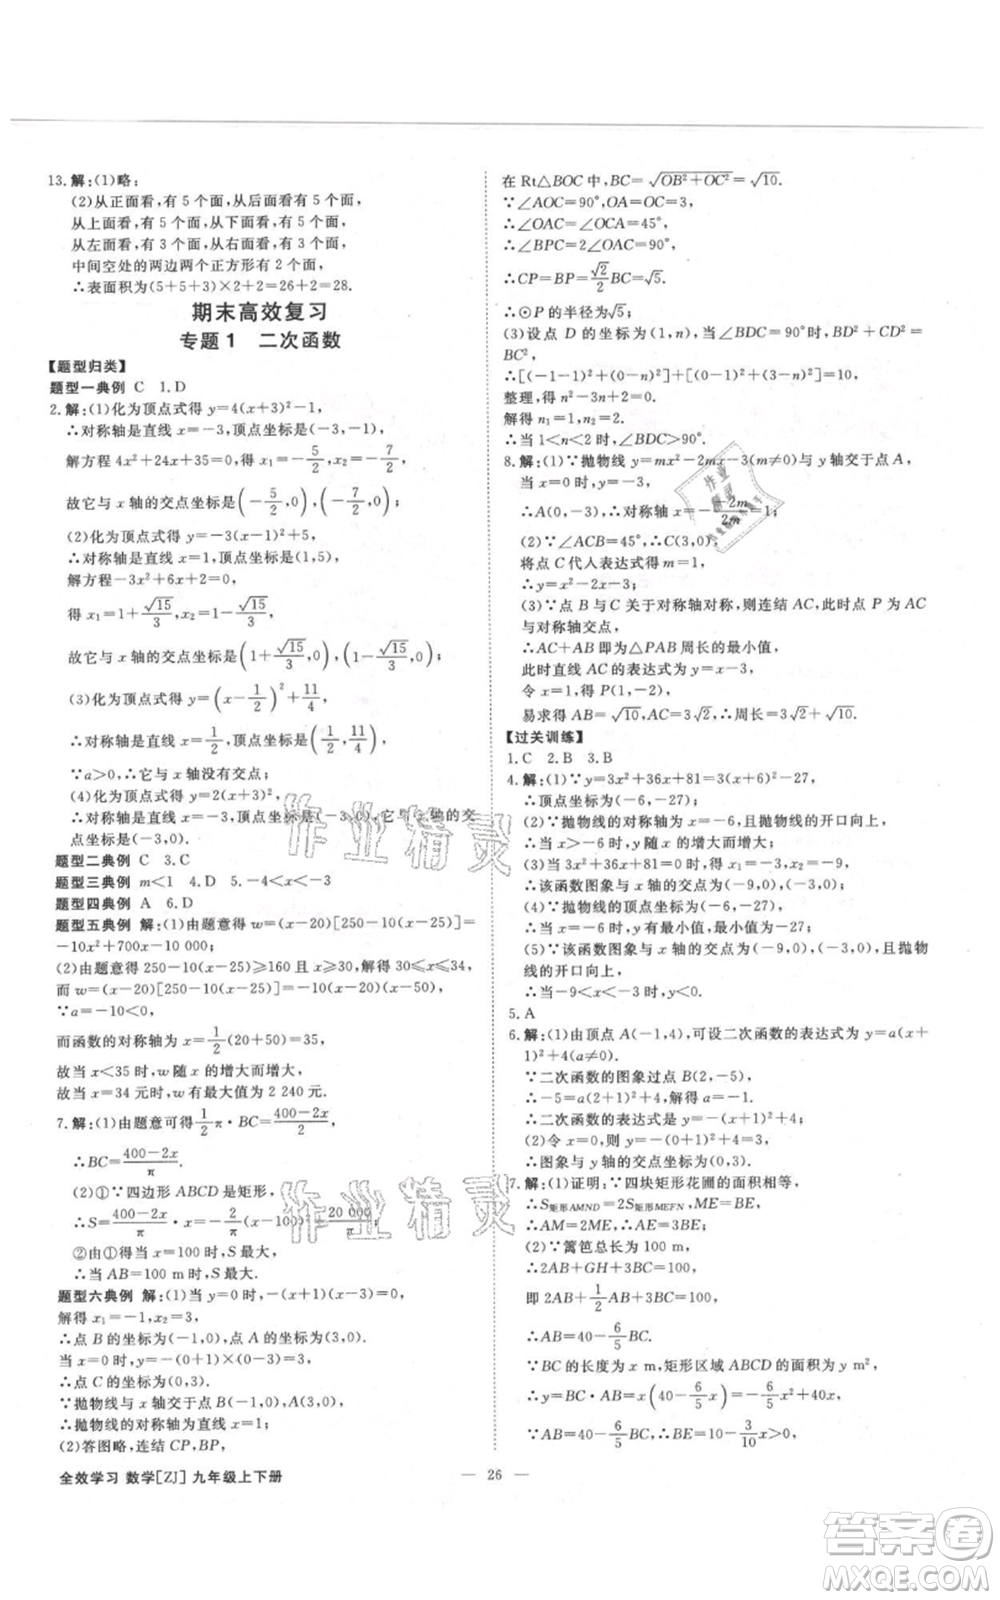 13.解:(1)略;
(2)从正面看,有5个面,从后面看有5个面,
从上面看,有5个面,从下面看,有5个面,
从左面看,有3个面,从右面看,有3个面,
中间空处的两边两个正方形有2个面,
∴表面积为(5+5+3)×2+2=26+2=28.
期末高效复习
专题1 二次函数
【题型归类】
题型一典例 C 1.D
2.解:(1)化为顶点式得 y=4(x+3)²-1,
∴对称轴是直线 x=-3,顶点坐标是(-3,-1),
解方程 4x²+24x+35=0,得 x₁=-5/2,x₂=-7/2,
故它与 x 轴的交点坐标是(-5/2,0),(-7/2,0);
(2)化为顶点式得 y=-3(x-1)²+5,
∴对称轴是直线 x=1,顶点坐标是(1,5),
解方程-3x²+6x+2=0,
得 x₁=1+√15/3,x₂=1-√15/3,
故它与 x 轴的交点坐标是(1+√15/3,0),(1-√15/3,0);
(3)化为顶点式得 y=(x-1/2)²+11/4,
∴对称轴是直线 x=1/2,顶点坐标是(1/2,11/4),
∵a>0,∴它与 x 轴没有交点;
(4)化为顶点式得 y=2(x+3)²,
∴对称轴是直线 x=-3,顶点坐标是(-3,0),它与 x 轴的交
点坐标是(-3,0).
题型二典例 C 3.C
题型三典例 m<1 4.D 5.-4<x<-3
题型四典例 A 6.D
题型五典例 解:(1)由题意得 w=(x-20)[250-10(x-25)]=
-10x²+700x-10 000;
(2)由题意得 250-10(x-25)≥160且 x≥30,解得 30≤x≤34,
而 w=(x-20)[250-10(x-25)],
∵a=-10<0,
而函数的对称轴为直线 x=1/2(20+50)=35,
故当 x<35 时,w 随 x 的增大而增大,
故当 x=34 元时,w 有最大值为 2 240 元.
7.解:(1)由题意可得1/2·π·BC=(400-2x)/2,
∴BC=(400-2x)/π.
(2)①∵四边形 ABCD 是矩形,
∴S=(400-2x)/π·x=-2/π(x-100)²+20 000/π;
②由①得当 x=100 时,S 最大,
∴当 AB=100 m 时,S 最大.
题型六典例 解:(1)当 y=0 时,-(x-1)²+4=0,
解得 x₁=-1,x₂=3,
∴点 B 的坐标为(-1,0),点 A 的坐标为(3,0);
当 x=0 时,y=-(0+1)×(0-3)=3,
∴点 C 的坐标为(0,3),
∵抛物线与 x 轴交于点 A(3,0),B(-1,0),
∴抛物线的对称轴为直线 x=1;
(2)答图略,连结 CP,BP,
在 Rt△BOC 中,BC=√(OB²+OC²)=√10.
∵∠AOC=90°,OA=OC=3,
∴∠OAC=∠OCA=45°,
∴∠BPC=2∠OAC=90°,
∴CP=BP=√2/2 BC=√5,
∴⊙P 的半径为√5;
(3)设点 D 的坐标为(1,n),当∠BDC=90°时,BD²+CD²=
BC²,
∴[(-1-1)²+(0-n)²]+[(0-1)²+(3-n)²]=10,
整理,得 n²-3n+2=0.
解得 n₁=1,n₂=2,
∴当 1<n<2 时,∠BDC>90°.
8.解:(1)∵抛物线 y=mx²-2mx-3与 y 轴交于点 A,
当 x=0 时,y=-3,
∴A(0,-3),∴对称轴 x=-(-2m)/2m=1;
(2)∵∠ACB=45°,∴点 C(3,0);
将点 C 代入表达式得 m=1,
∴y=x²-2x-3;
(3)∵点 B 与 C 关于对称轴对称,则连结 AC,此时点 P 为 AC
与对称轴交点,
∴AC+AB 即为△PAB 周长的最小值,
此时直线 AC 的表达式为 y=x-3,
令 x=1,得 P(1,-2),
易求得 AB=√10,AC=3√2,∴周长=3√2+√10.
【过关训练】
1.C 2.B 3.B
4.解:(1)∵y=3x²+36x+81=3(x+6)²-27,
∴顶点坐标为(-6,-27);
(2)∵抛物线的对称轴为直线 x=-6,且抛物线的开口向上,
∴当 x>-6 时,y 随 x 的增大而增大;
(3)当 3x²+36x+81=0 时,得 x₁=-3,x₂=-9,
∴该函数图象与 x 轴的交点为(-9,0),(-3,0);
(4)∵抛物线的顶点坐标为(-6,-27),
∴当 x=-6 时,y 有最小值,最小值为-27;
(5)∵该函数图象与 x 轴的交点为(-9,0),(-3,0),且抛物
线的开口向上,
∴当-9<x<-3 时,y<0.
5.A
6.解:(1)由顶点 A(-1,4),可设二次函数的表达式为 y=a(x+
1)²+4(a≠0).
∵二次函数的图象过点 B(2,-5),
∴-5=a(2+1)²+4,解得 a=-1.
∴二次函数的表达式是 y=-(x+1)²+4;
(2)令 x=0,得 y=-(0+1)²+4=3,
∴图象与 y 轴的交点坐标为(0,3).
7.解:(1)证明:∵四块矩形花圃的面积相等,
∴S矩形AMND=2S矩形MEFN,∴ME=BE,
∴AM=2ME,∴AE=3BE;
(2)∵篱笆总长为 100 m,
∴2AB+GH+3BC=100,
即 2AB+1/2AB+3BC=100,
∴AB=40-6/5BC.
∵BC 的长度为 x m,矩形区域 ABCD 的面积为 y m²,
∴y=BC·AB=x(40-6/5x)=-6/5x²+40x,
∵BE=1/4AB=10-3/10x>0,
全效学习 数学[ZJ] 九年级上下册
— 26 —
作业精灵
作业精灵
答案卷
MXQE.COM